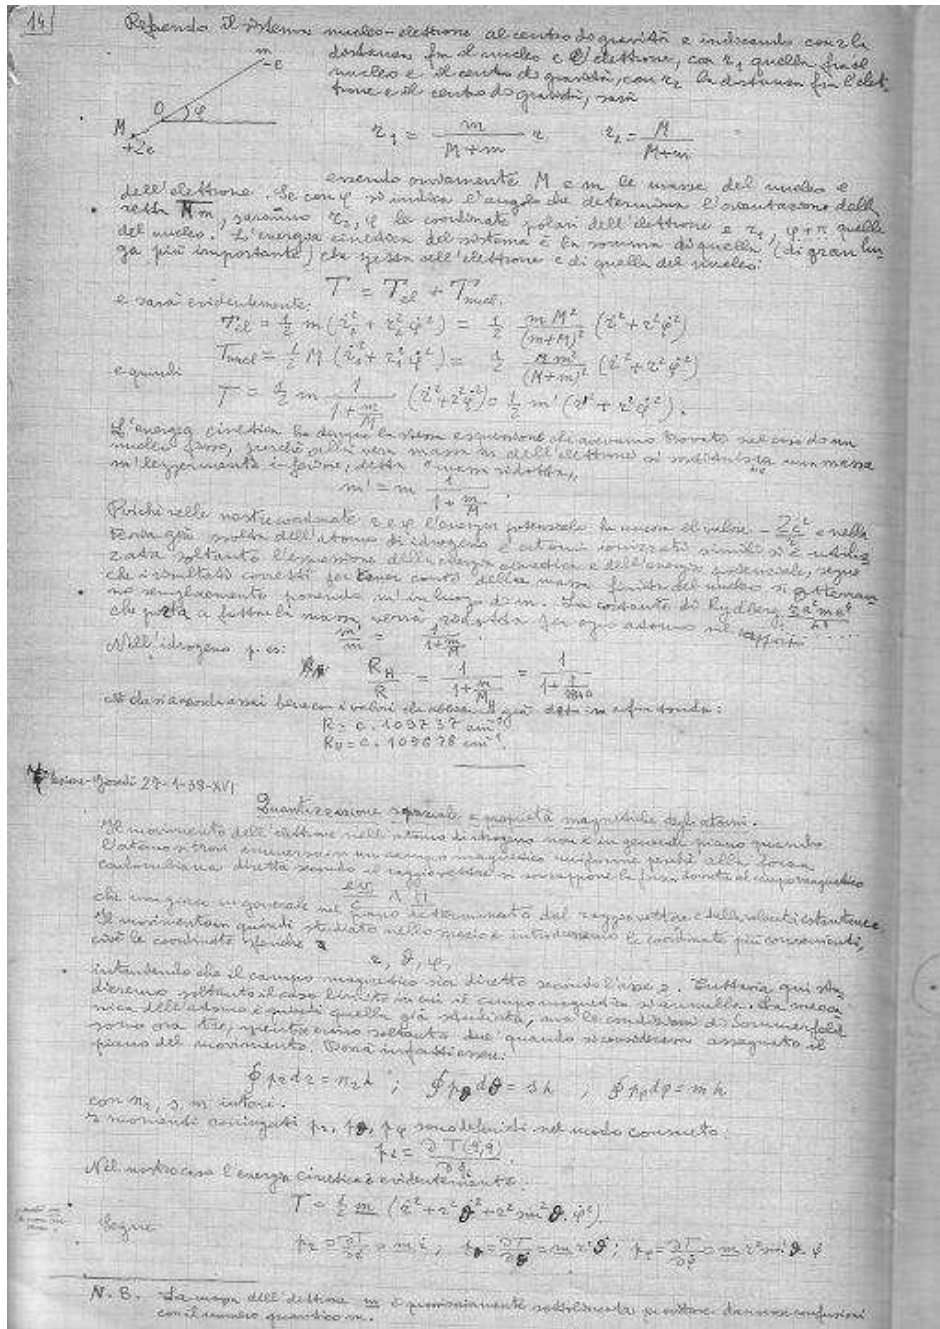 14
Riferendo il sistema nucleo-elettrone al centro di gravità e indicando con r la
distanza fra il nucleo e l'elettrone, con r₁ quella fra il
nucleo e il centro di gravità, con r₂ la distanza fra l'elet-
trone e il centro di gravità, sarà
m
-e
O φ
M
+Ze
r₁ = m/(M+m) r r₂ = M/(M+m)
essendo ovviamente M e m le masse del nucleo e
dell'elettrone. Se con φ si indica l'angolo che determina l'orientazione della
retta Mm, saranno r₂, φ le coordinate polari dell'elettrone e r₁, φ+π quelle
del nucleo. L'energia cinetica del sistema è la somma di quella (di gran lun-
ga più importante) che spetta all'elettrone e di quella del nucleo:
T = T_el + T_nucl.
e sarà evidentemente:
T_el = 1/2 m (ṙ₂² + r₂² φ̇²) = 1/2 mM²/(m+M)² (ṙ² + r² φ̇²)
T_nucl = 1/2 M (ṙ₁² + r₁² φ̇²) = 1/2 Mm²/(M+m)² (ṙ² + r² φ̇²)
e quindi
T = 1/2 m 1/(1+m/M) (ṙ² + r² φ̇²) = 1/2 m' (ṙ² + r² φ̇²).
L'energia cinetica ha dunque la stessa espressione che avevamo trovato nel caso di un
nucleo fisso, purché alla vera massa m dell'elettrone si sostituisca una massa
m' leggermente inferiore, detta "massa ridotta"
m' = m 1/(1+m/M).
Poiché nelle nostre coordinate r e φ l'energia potenziale ha ancora il valore - Ze²/r e nella
teoria già svolta dell'atomo di idrogeno e atomi ionizzati simili si è utiliz-
zata soltanto l'espressione dell'energia cinetica e dell'energia potenziale, segue
che i risultati corretti per tener conto della massa finita del nucleo si otterran-
no semplicemente ponendo m' in luogo di m. La costante di Rydberg
che porta a fattore la massa, verrà ridotta per ogni atomo nel rapporto
m'/m = 1/(1+m/M).
Nell'idrogeno p. es:
R_H/R = 1/(1+m/M) = 1/(1+1/1840)
che si accorda assai bene con i valori che abbiamo già dati in
R = c. 109737 cm⁻¹
R_H = c. 109678 cm⁻¹.
Lezione - Giovedì 27-1-38-XVI
Quantizzazione spaziale e proprietà magnetiche degli atomi.
Il movimento dell'elettrone nell'atomo di idrogeno non è in generale piano quando
l'atomo si trovi immerso in un campo magnetico uniforme perché alla forza
coulombiana diretta secondo il raggio vettore si sovrappone la forza dovuta al campo magnetico
ev/c ∧ H
che non giace in generale nel piano determinato dal raggio vettore e dalla velocità istantanea.
Il movimento va quindi studiato nello spazio e introdurremo le coordinate più convenienti,
cioè le coordinate sferiche
r, θ, φ,
intendendo che il campo magnetico sia diretto secondo l'asse z. Tuttavia qui stu-
dieremo soltanto il caso limite in cui il campo magnetico si annulla. La mecca-
nica dell'atomo è quindi quella già studiata, ma le condizioni di Sommerfeld
sono ora tre, mentre erano soltanto due quando si considerava assegnato il
piano del movimento. Dovrà infatti essere:
∮ p_r dr = n_r h ; ∮ p_θ dθ = s h , ∮ p_φ dφ = m h
con n_r, s, m interi.
I momenti coniugati p_r, p_θ, p_φ sono definiti nel modo consueto:
p_i = ∂T(q, q̇)/∂q̇_i
Nel nostro caso l'energia cinetica è evidentemente:
T = 1/2 m (ṙ² + r² θ̇² + r² sin² θ · φ̇²)
Segue
p_r = ∂T/∂ṙ = m ṙ ; p_θ = ∂T/∂θ̇ = m r² θ̇ ; p_φ = ∂T/∂φ̇ = m r² sin² θ φ̇
N. B. La massa dell'elettrone m è provvisoriamente sottolineata per evitare confusioni
con il numero quantico m.